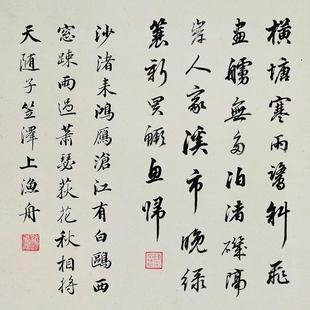 橫塘寒雨響斜飛
畫艣無多泊渚磯隔
岸人家溪市晚綠
蓑新買鱖魚歸
沙渚來鴻鴈滄江有白鷗西
窓疎雨過蕭瑟荻花秋相將
天隨子笠澤上漁舟